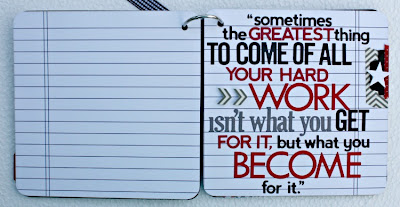 “sometimes
the GREATEST thing
TO COME OF ALL
YOUR HARD
WORK
isn't what you GET
FOR IT, but what you
BECOME
for it.”